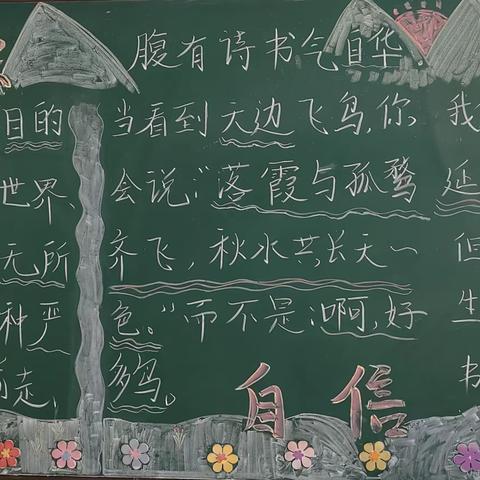 日的
世界、
无所
种严
走,
腹有诗书气自华
当看到天边飞鸟,你
会说:“落霞与孤鹜
齐飞,秋水共长天一
色。”而不是:啊,好
多鸟。
自信
我
延
但
生
书